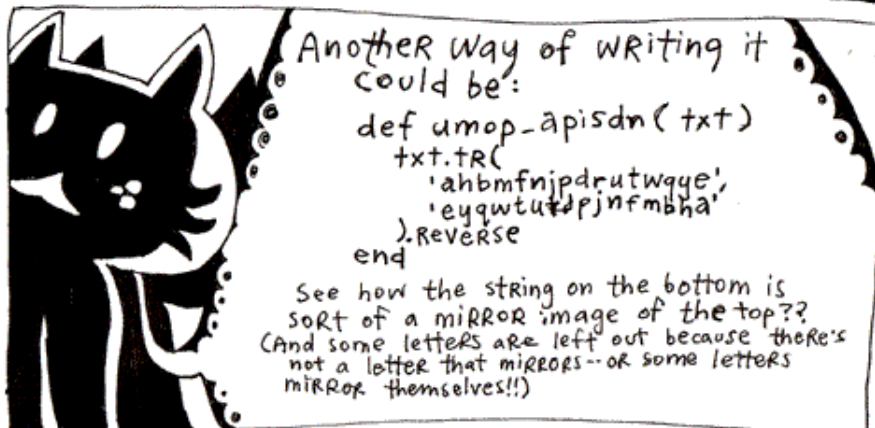 Another way of writing it
could be:
def umop_apisdn( txt )
txt.tr(
'ahbmfnjpdrutwqye',
'eyqwtutdpjnfmbha'
).reverse
end
See how the string on the bottom is
sort of a mirror image of the top??
(And some letters are left out because there's
not a letter that mirrors--or some letters
mirror themselves!!)